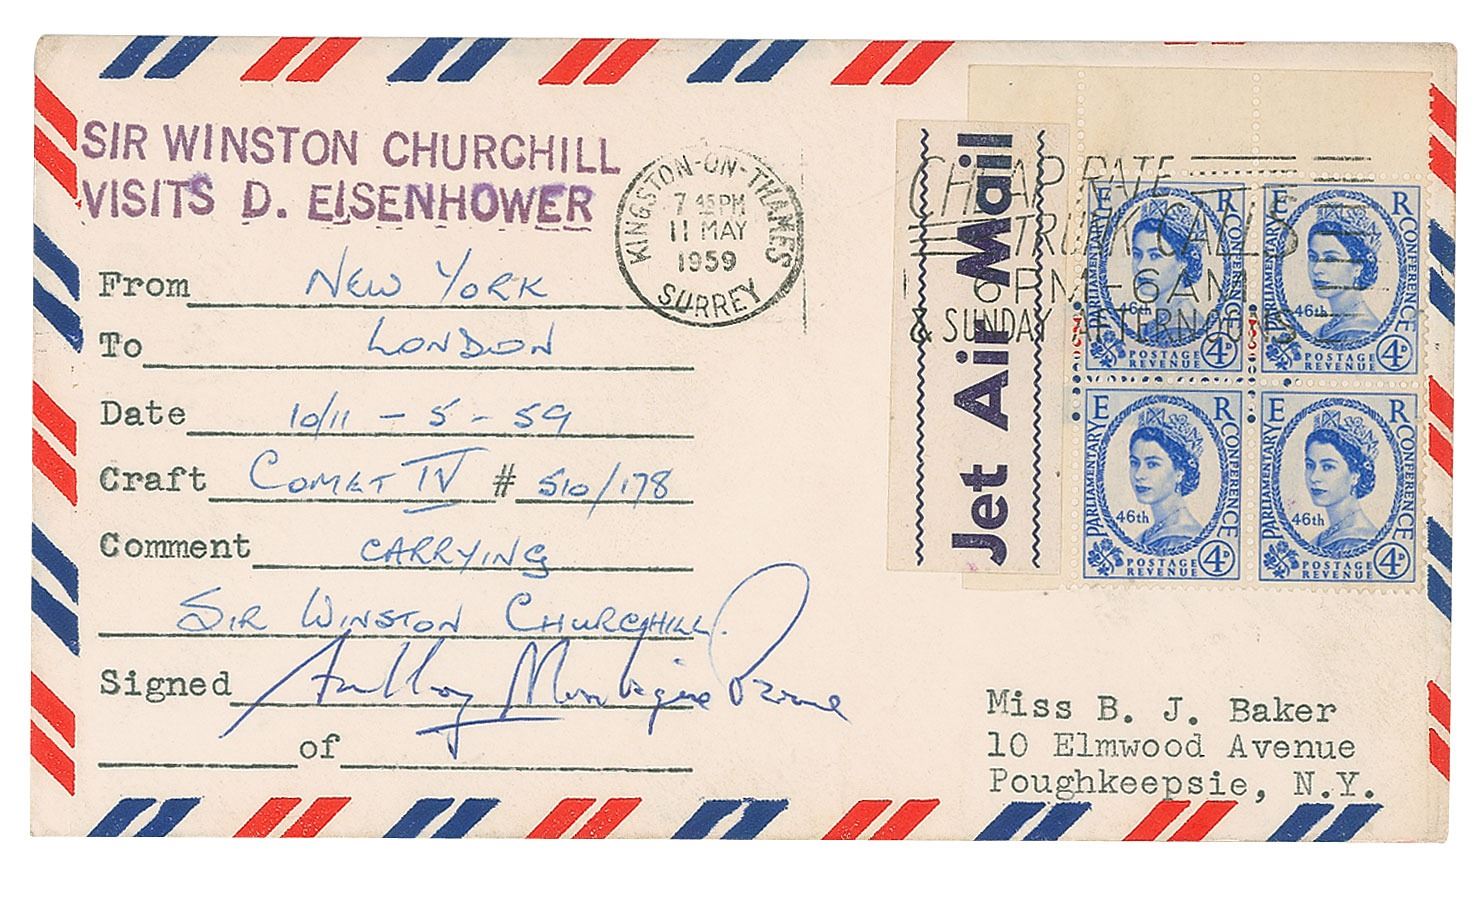 SIR WINSTON CHURCHILL
VISITS D. EISENHOWER
From NEW YORK
To LONDON
Date 10/11 - 5 - 59
Craft COMET IV # 510/178
Comment CARRYING
SIR WINSTON CHURCHILL.
Signed Anthony Montague Browne
of
KINGSTON-ON-THAMES
7 45 PM
11 MAY
1959
SURREY
Jet Air Mail
CHEAP RATE
TRUNK CALLS
6PM-6AM
& SUNDAY AFTERNOONS
E R
PARLIAMENTARY CONFERENCE
46th
POSTAGE
REVENUE 4D
E R
PARLIAMENTARY CONFERENCE
46th
POSTAGE
REVENUE 4D
E R
PARLIAMENTARY CONFERENCE
46th
POSTAGE
REVENUE 4D
E R
PARLIAMENTARY CONFERENCE
46th
POSTAGE
REVENUE 4D
Miss B. J. Baker
10 Elmwood Avenue
Poughkeepsie, N.Y.